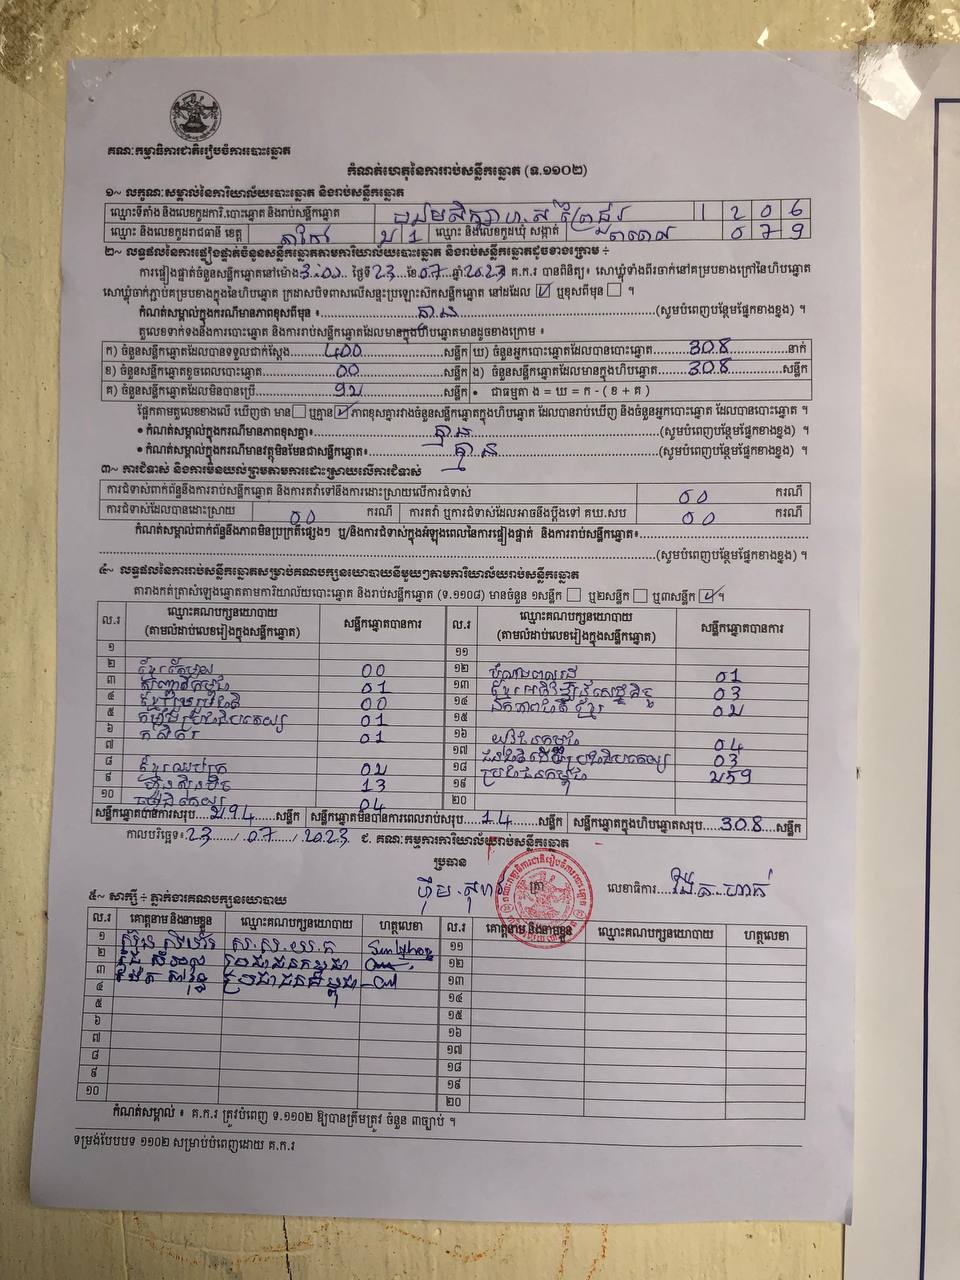 គណៈកម្មាធិការជាតិរៀបចំការបោះឆ្នោត
កំណត់ហេតុនៃការរាប់សន្លឹកឆ្នោត (ទ.១១០២)
១~ លក្ខណៈសម្គាល់នៃការិយាល័យបោះឆ្នោត និងរាប់សន្លឹកឆ្នោត
ឈ្មោះទីតាំង និងលេខកូដការិ.បោះឆ្នោត និងរាប់សន្លឹកឆ្នោត 1206
ឈ្មោះ និងលេខកូដរាជធានី ខេត្ត តាកែវ ២1 ឈ្មោះ និងលេខកូដឃុំ សង្កាត់ 079
២~ លទ្ធផលនៃការផ្ទៀងផ្ទាត់ចំនួនសន្លឹកឆ្នោតតាមការិយាល័យបោះឆ្នោត និងរាប់សន្លឹកឆ្នោតដូចខាងក្រោម ÷
ការផ្ទៀងផ្ទាត់ចំនួនសន្លឹកឆ្នោតនៅម៉ោង 3:00 ថ្ងៃទី 23 ខែ 07 ឆ្នាំ 2023 គ.ក.រ បានពិនិត្យ៖ សោឃ្មុំទាំងពីរចាក់នៅគម្របខាងក្រៅនៃហិបឆ្នោត
សោឃ្មុំចាក់ភ្ជាប់គម្របខាងក្នុងនៃហិបឆ្នោត ក្រដាសបិទពាសលើសន្ទះប្រឡោះស៊កសន្លឹកឆ្នោត នៅដដែល ☑ ឬខុសពីមុន ☐ ។
កំណត់សម្គាល់ក្នុងករណីមានភាពខុសពីមុន ៖ គ្មាន (សូមបំពេញបន្ថែមផ្នែកខាងខ្នង) ។
តួលេខទាក់ទងនឹងការបោះឆ្នោត និងការរាប់សន្លឹកឆ្នោតដែលមានក្នុងហិបឆ្នោតមានដូចខាងក្រោម ៖
ក) ចំនួនសន្លឹកឆ្នោតដែលបានទទួលជាក់ស្តែង 400 សន្លឹក ឃ) ចំនួនអ្នកបោះឆ្នោតដែលបានបោះឆ្នោត 308 នាក់
ខ) ចំនួនសន្លឹកឆ្នោតខូចពេលបោះឆ្នោត 00 សន្លឹក ង) ចំនួនសន្លឹកឆ្នោតដែលមានក្នុងហិបឆ្នោត 308 សន្លឹក
គ) ចំនួនសន្លឹកឆ្នោតដែលមិនបានប្រើ 9២ សន្លឹក • ជាធម្មតា ង = ឃ = ក - ( ខ + គ )
ផ្អែកតាមតួលេខខាងលើ ឃើញថា មាន ☐ ឬគ្មាន ☑ ភាពខុសគ្នារវាងចំនួនសន្លឹកឆ្នោតក្នុងហិបឆ្នោត ដែលបានរាប់ឃើញ និងចំនួនអ្នកបោះឆ្នោត ដែលបានបោះឆ្នោត ។
• កំណត់សម្គាល់ក្នុងករណីមានភាពខុសគ្នា៖ គ្មាន (សូមបំពេញបន្ថែមផ្នែកខាងខ្នង) ។
• កំណត់សម្គាល់ក្នុងករណីមានវត្ថុមិនមែនជាសន្លឹកឆ្នោត៖ គ្មាន (សូមបំពេញបន្ថែមផ្នែកខាងខ្នង) ។
៣~ ការជំទាស់ និងការមិនយល់ព្រមតាមការដោះស្រាយលើការជំទាស់
ការជំទាស់ពាក់ព័ន្ធនឹងការរាប់សន្លឹកឆ្នោត និងការតវ៉ាទៅនឹងការដោះស្រាយលើការជំទាស់ 00 ករណី
ការជំទាស់ដែលបានដោះស្រាយ 00 ករណី ការតវ៉ា ឬការជំទាស់ដែលអាចនឹងប្តឹងទៅ គឃ.សប 00 ករណី
កំណត់សម្គាល់ពាក់ព័ន្ធនឹងភាពមិនប្រក្រតីផ្សេងៗ ឬ/និងការជំទាស់ក្នុងអំឡុងពេលនៃការផ្ទៀងផ្ទាត់ និងការរាប់សន្លឹកឆ្នោត៖
(សូមបំពេញបន្ថែមផ្នែកខាងខ្នង) ។
៤~ លទ្ធផលនៃការរាប់សន្លឹកឆ្នោតសម្រាប់គណបក្សនយោបាយនីមួយៗតាមការិយាល័យរាប់សន្លឹកឆ្នោត
តារាងកត់ត្រាសំឡេងឆ្នោតតាមការិយាល័យបោះឆ្នោត និងរាប់សន្លឹកឆ្នោត (ទ.១១០៨) មានចំនួន ១សន្លឹក ☐ ឬ២សន្លឹក ☐ ឬ៣សន្លឹក ☑ ។
ល.រ ឈ្មោះគណបក្សនយោបាយ (តាមលំដាប់លេខរៀងក្នុងសន្លឹកឆ្នោត) សន្លឹកឆ្នោតបានការ ល.រ ឈ្មោះគណបក្សនយោបាយ (តាមលំដាប់លេខរៀងក្នុងសន្លឹកឆ្នោត) សន្លឹកឆ្នោតបានការ
១ ១១
២ 00 ១២ 01
៣ 01 ១៣ ខ្មែរអភិវឌ្ឍន៍សេដ្ឋកិច្ច 03
៤ 00 ១៤ ឯកភាពជាតិខ្មែរ 0២
៥ កម្ពុជាប្រជាធិបតេយ្យ 01 ១៥
៦ កសិករ 01 ១៦ យុវជនកម្ពុជា 04
៧ ១៧ ជនជាតិដើមប្រជាធិបតេយ្យ 03
៨ ខ្មែរឈប់ក្រ 0២ ១៨ ប្រជាជនកម្ពុជា ២59
៩ ហ៊្វុនស៊ិនប៉ិច 13 ១៩
១០ ធម្មាធិបតេយ្យ 04 ២០
សន្លឹកឆ្នោតបានការសរុប ២94 សន្លឹក សន្លឹកឆ្នោតមិនបានការពេលរាប់សរុប 14 សន្លឹក សន្លឹកឆ្នោតក្នុងហិបឆ្នោតសរុប 308 សន្លឹក
កាលបរិច្ឆេទ៖ 23 / 07 / 2023 ជ. គណៈកម្មការការិយាល័យរាប់សន្លឹកឆ្នោត
ប្រធាន
ត្រា លេខាធិការ
៥~ សាក្សី ÷ ភ្នាក់ងារគណបក្សនយោបាយ
ល.រ គោត្តនាម និងនាមខ្លួន ឈ្មោះគណបក្សនយោបាយ ហត្ថលេខា ល.រ គោត្តនាម និងនាមខ្លួន ឈ្មោះគណបក្សនយោបាយ ហត្ថលេខា
១ ស.ស.យ.ក ១១
២ ប្រជាជនកម្ពុជា ១២
៣ ប្រជាជនកម្ពុជា ១៣
៤ ១៤
៥ ១៥
៦ ១៦
៧ ១៧
៨ ១៨
៩ ១៩
១០ ២០
កំណត់សម្គាល់ ៖ គ.ក.រ ត្រូវបំពេញ ទ.១១០២ ឱ្យបានត្រឹមត្រូវ ចំនួន ៣ច្បាប់ ។
ទម្រង់បែបបទ ១១០២ សម្រាប់បំពេញដោយ គ.ក.រ